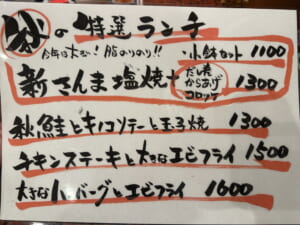 秋の特選ランチ
今年は大きい!脂のりのり!!
・小鉢セット 1100
新さんま塩焼+だし巻からあげコロッケ 1300
秋鮭とキノコソテーと玉子焼 1300
チキンステーキと大きなエビフライ 1500
大きなハンバーグとエビフライ 1600